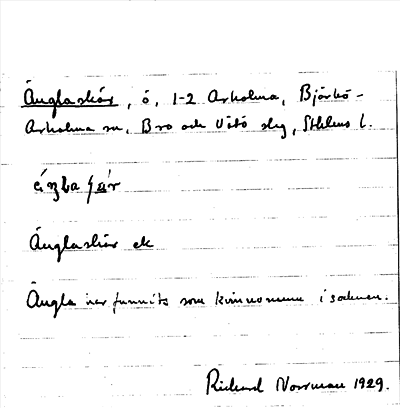 Änglaskär, ö, 1-2 Arholma, Björkö-
Arholma sn, Bro och Vätö slg, Sthlms l.
Änglaskär ek
Ängla har funnits som kvinnonamn i socknen.
Rickard Norrman 1929.